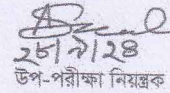 ২৮/৯/২৪
উপ-পরীক্ষা নিয়ন্ত্রক